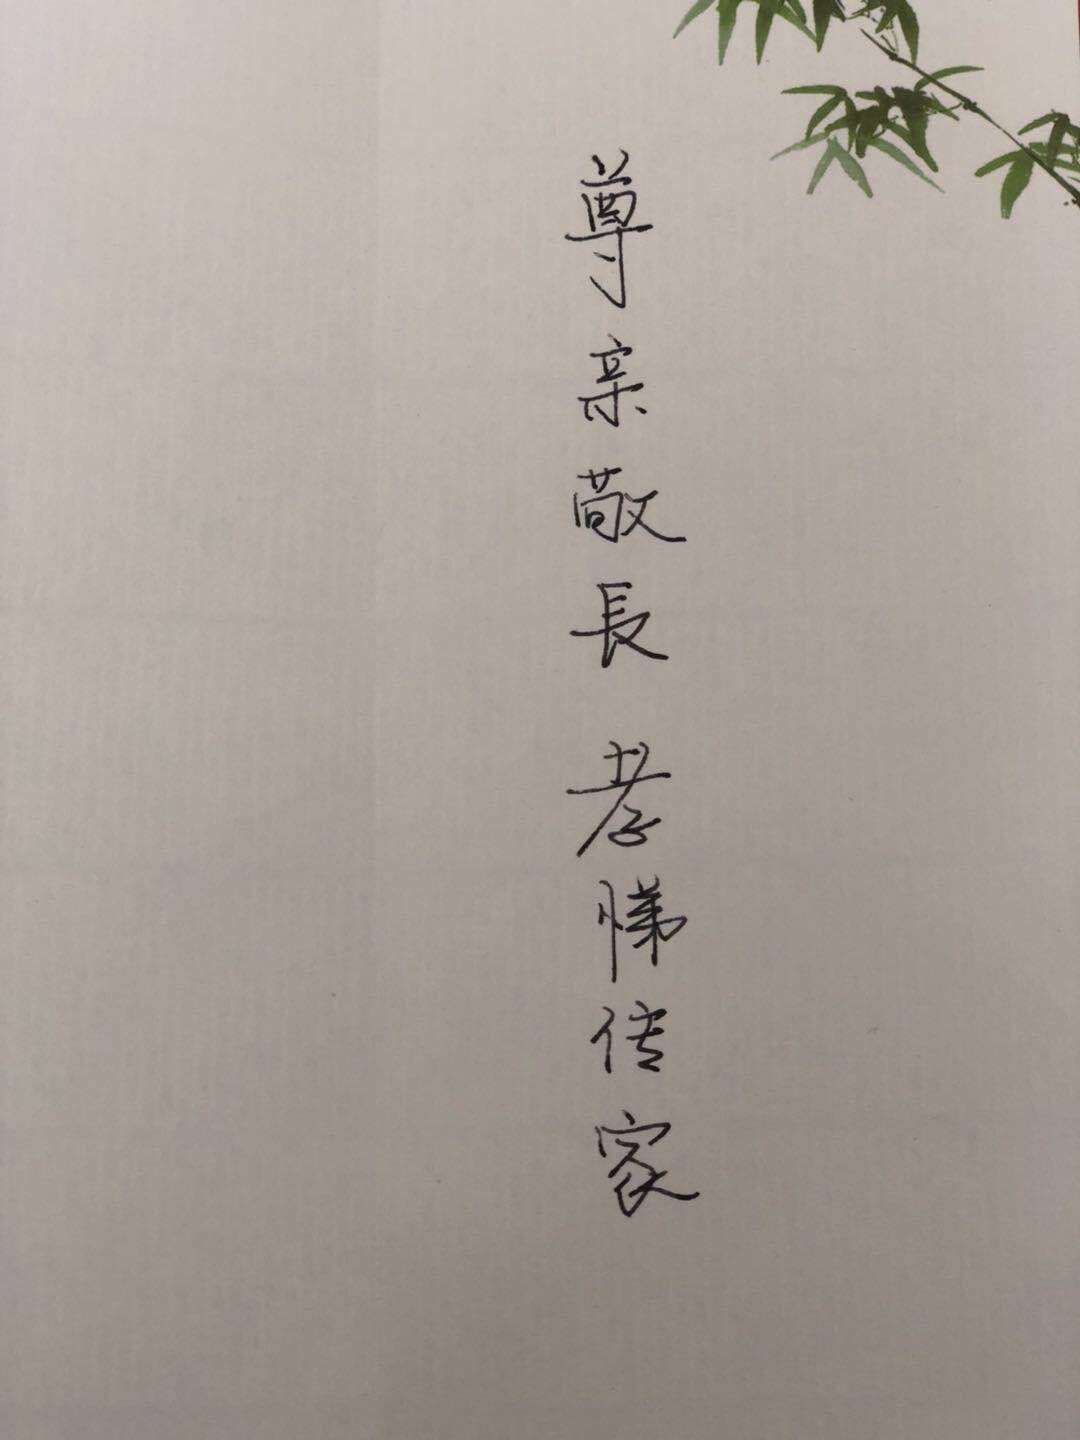 尊亲敬長 孝悌传家